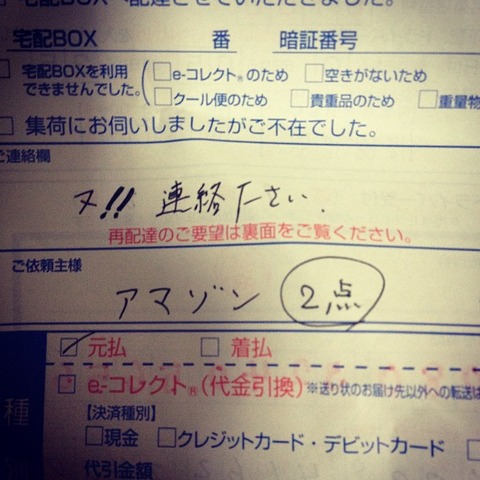 宅配BOXへ配達させていただきました。
宅配BOX 番 暗証番号
宅配BOXを利用できませんでした。
e-コレクト®のため 空きがないため
クール便のため 貴重品のため 重量物
集荷にお伺いしましたがご不在でした。
ご連絡欄
ヌ!! 連絡下さい.
再配達のご要望は裏面をご覧ください。
ご依頼主様
アマゾン 2点
元払 着払
e-コレクト®(代金引換) ※送り状のお届け先以外への転送は
種
[決済種別]
現金 クレジットカード・デビットカード
代引金額